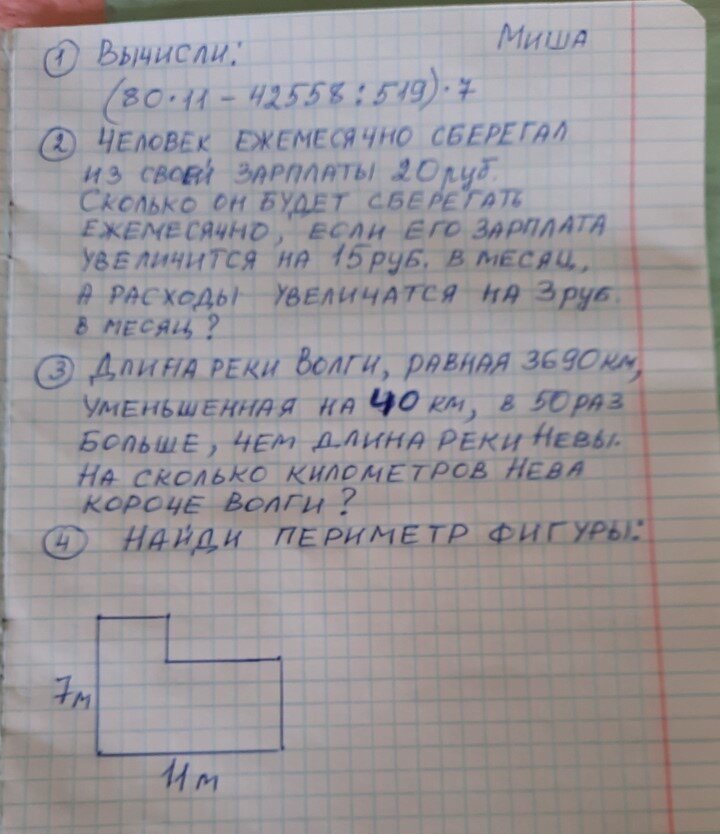 Миша
① Вычисли:
(80·11 - 42558 : 519) · 7
② Человек ежемесячно сберегал
из своей зарплаты 20 руб.
Сколько он будет сберегать
ежемесячно, если его зарплата
увеличится на 15 руб. в месяц,
а расходы увеличатся на 3 руб.
в месяц?
③ Длина реки Волги, равная 3690 км,
уменьшенная на 40 км, в 50 раз
больше, чем длина реки Невы.
На сколько километров Нева
короче Волги?
④ Найди периметр фигуры:
7м
11м